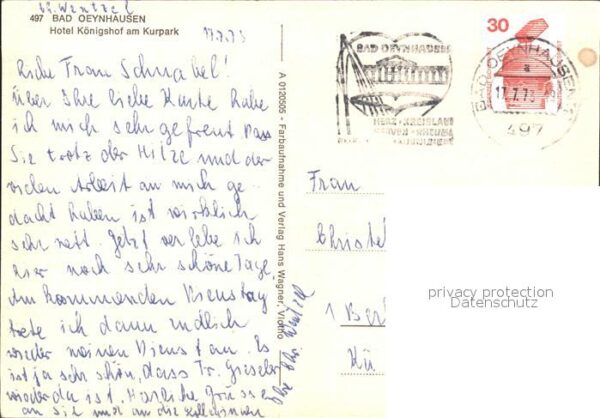 497 BAD OEYNHAUSEN
Hotel Königshof am Kurpark
17.7.73
Liebe Frau Schnabel!
Über Ihre liebe Karte habe
ich mich sehr gefreut. Dass
Sie trotz der Hitze und der
vielen Arbeit an mich ge-
dacht haben ist wirklich
sehr nett. Jetzt verlebe ich
hier noch sehr schöne Tage.
Am kommenden Dienstag
trete ich dann endlich
wieder meinen Dienst an. Es
ist ja sehr schön, dass Fr. Gieseler
wieder da ist. Herzliche Grüsse
an Sie und an die Kolleginnen
Ihre
A 0120505 - Farbaufnahme und Verlag Hans Wagner, Vlotho
BAD OEYNHAUSEN
HERZ - KREISLAUF
30
BAD OEYNHAUSEN
a
17.7.73
497
Frau
Christel
1 Berl
privacy protection
Datenschutz